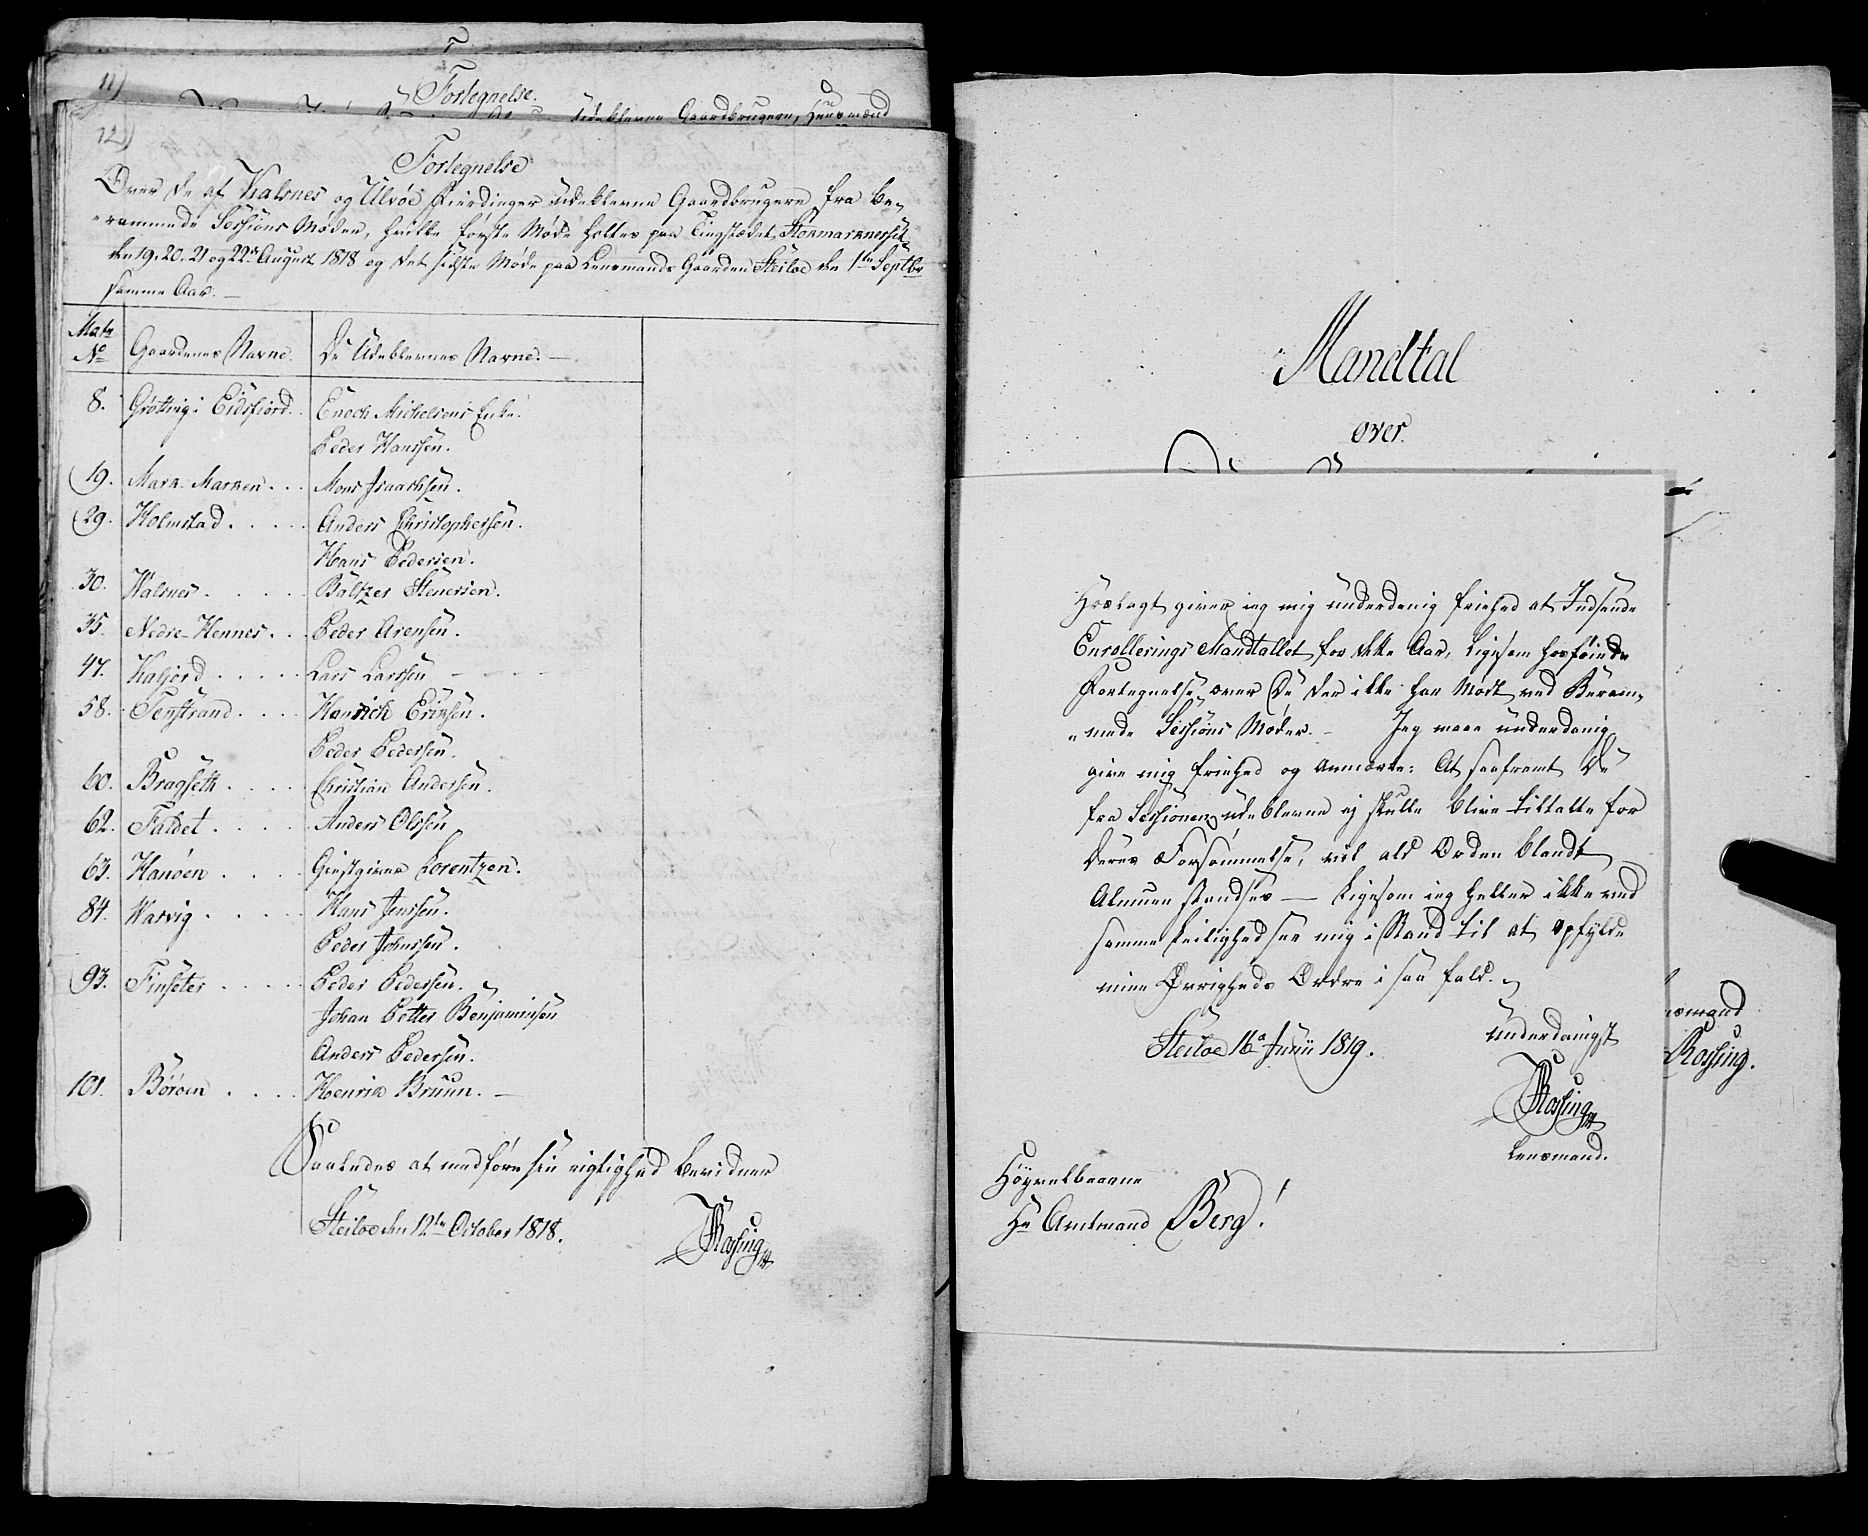 11)
Fortegnelse.
Udeblevne Gaardbrugere, Huusmænd
12)
Fortegnelse
Over de af Kalsnes og Ulvøe Fierdinger udeblevne Gaardbrugere fra be-
rammede Sessions Møder, hvilke første Møde holtes paa Tingstædet Stokmarknes
den 19, 20, 21 og 22de August 1818 og det sidste Møde paa Lensmands Gaarden Steiloe den 1te Septbr
samme Aar. —
Matr No Gaardenes Navne. De Udeblevnes Navne. —
8. Grøttvig i Eidsfiord. Enoch Michelsens Enke.
Peder Hanssen.
19. Mark-Marken . . . Mons Isaachsen.
29. Holmstad . . . . . Anders Christophersen.
Hans Pedersen.
30. Kalsnes . . . . . Baltzer Stenersen.
35. Nedre-Hennes . . Peder Arensen.
47. Kaljord . . . . . Lars Larssen
58. Tenstrand . . . . Henrich Eriksen.
Peder Pedersen.
60. Bragseth . . . . Christian Andersen.
62. Faldet . . . . . Anders Olssen
63. Hanøen . . . . Giestgiver Lorentzen.
84. Warvig . . . . . Hans Jenssen.
Peder Johnssen.
93. Finseter . . . . . Peder Pedersen.
Johan Petter Benjaminsen
Anders Pedersen.
101. Børøen . . . . Henrik Bruun. —
Saaledes at medføre sin rigtighed bevidner
Steiloe den 12te October 1818.
Røsting
Mandtal
over
Hoslagt giver jeg mig underdanig friehed at Indsende
Enrollerings Mandtallet for dette Aar, ligesom hosføiede
Fortegnelse over De der ikke har Mødt ved Beram-
mede Sessions Møder. — Jeg maae underdanig
give mig friehed og anmærke: At saafremt De
fra Sessionen udeblevne ej skulle blive tiltalte for
Deres Forsømmelse, vil ald Orden blandt
Almuen standses — Ligesom jeg heller ikke ved
samme Leilighed seer mig i Stand til at opfylde
mine Øvrigheds Ordre i saa fald.
Steiloe 16a Junii 1819.
Underdanigst
Røsting
Lensmand.
Høyvelbaarne
Hr Amtmand Berg!
smand
Røsting.